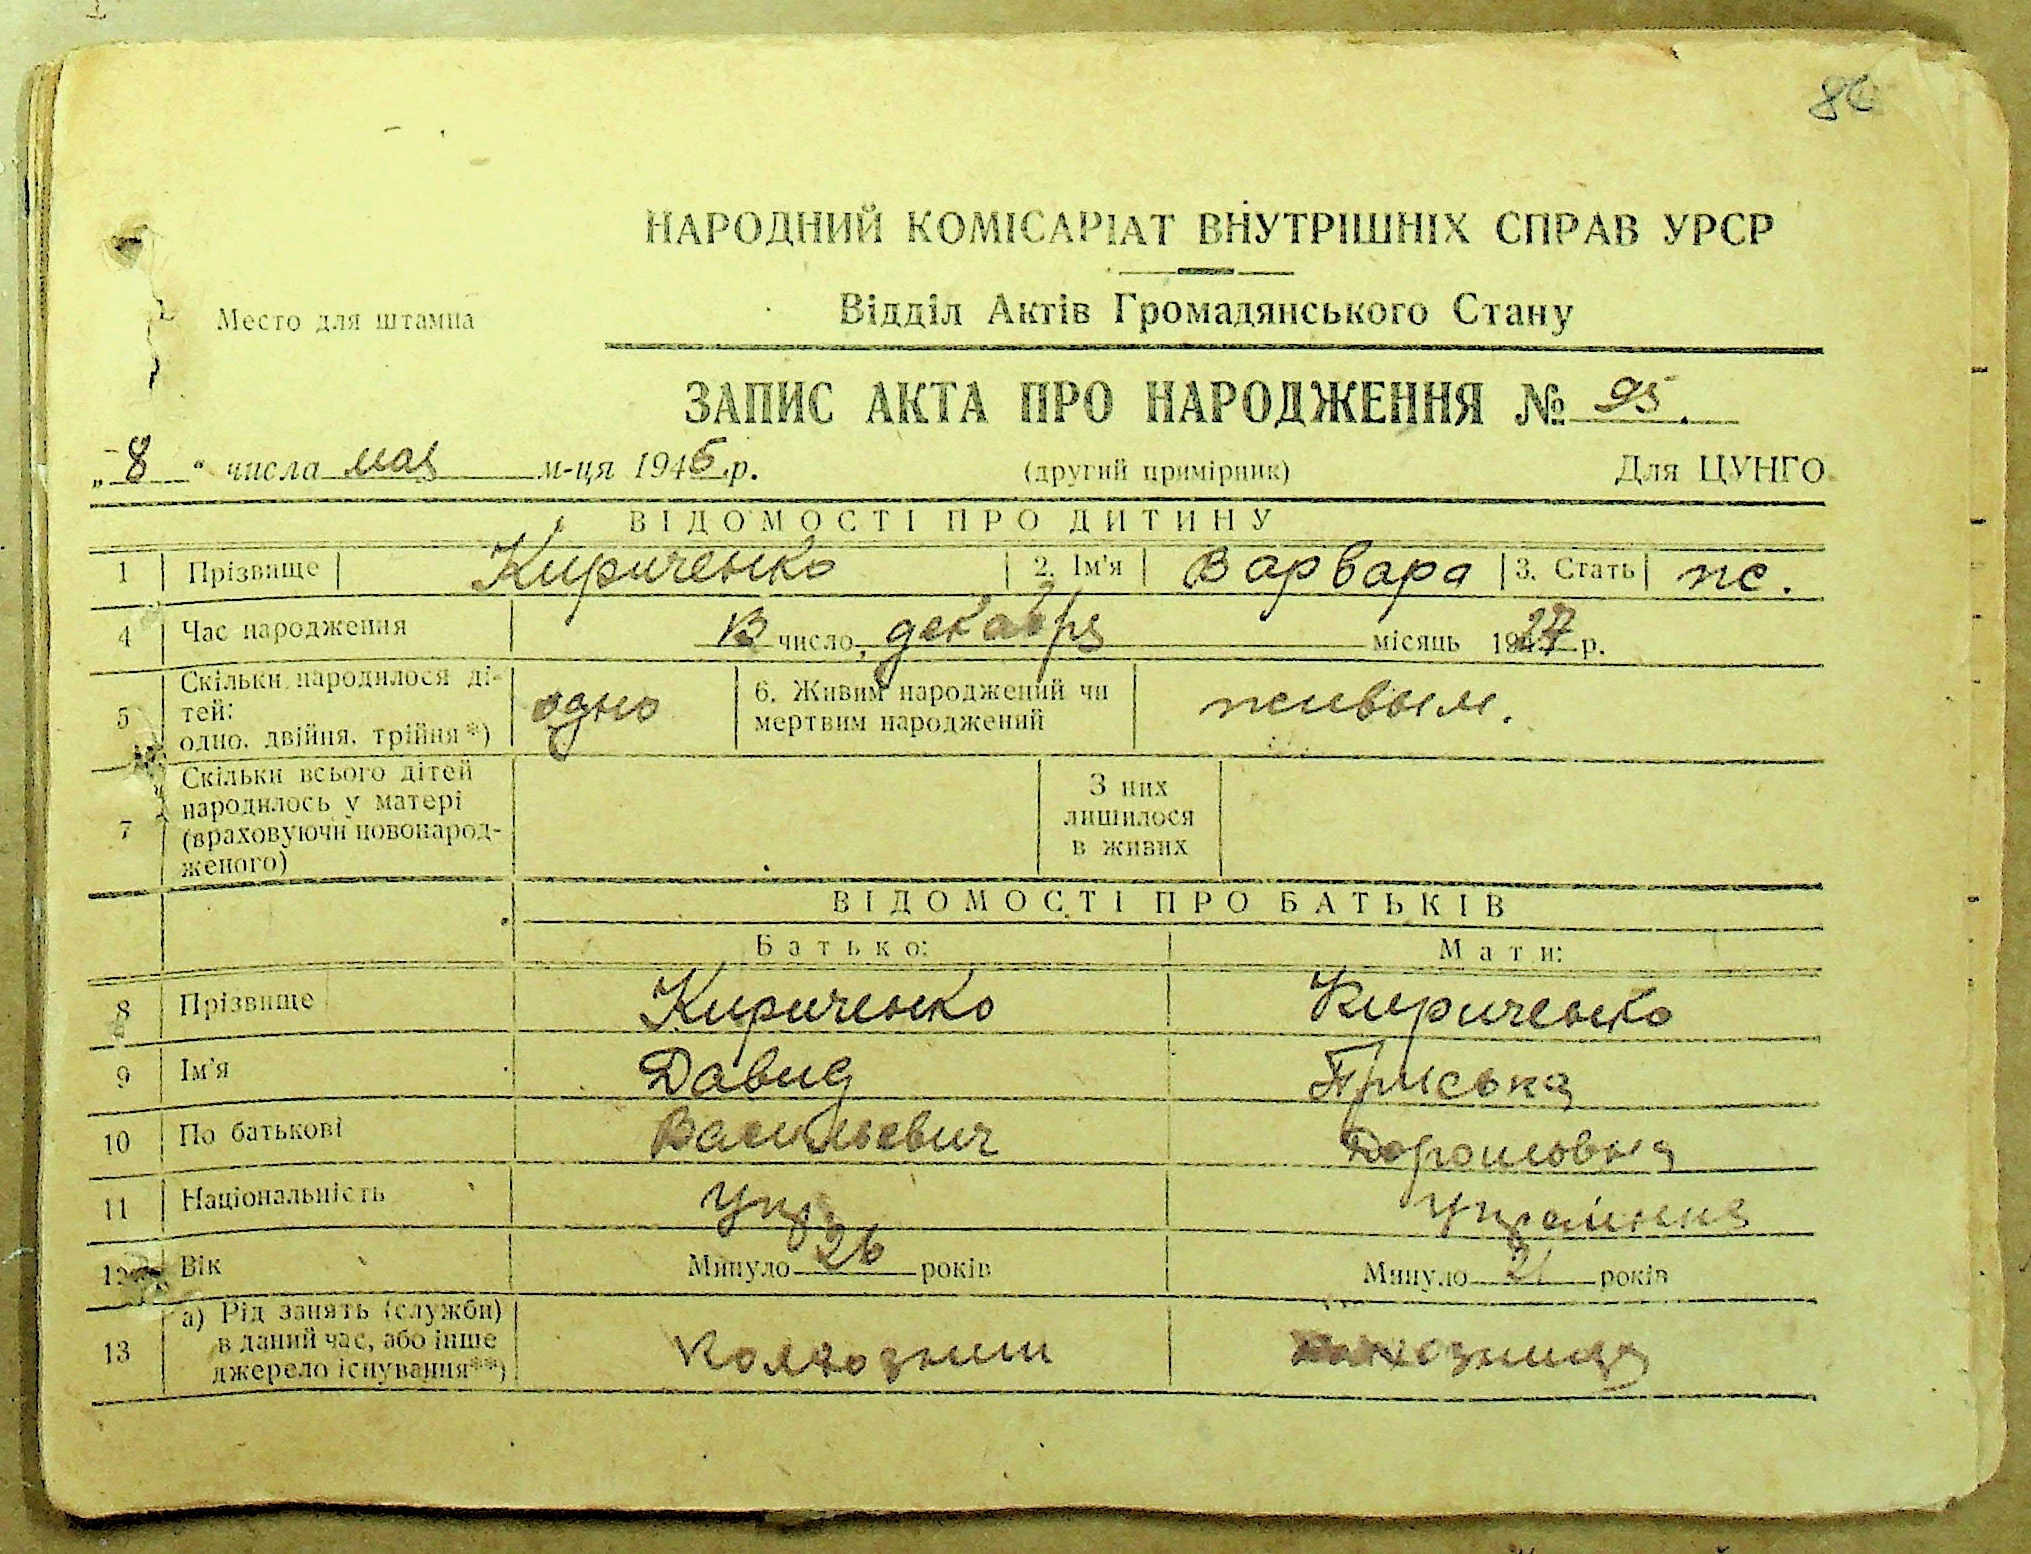 НАРОДНИЙ КОМІСАРІАТ ВНУТРІШНІХ СПРАВ УРСР
Место для штампа
Відділ Актів Громадянського Стану
ЗАПИС АКТА ПРО НАРОДЖЕННЯ № 95.
„8“ числа мая м-ця 1945 р. (другий примірник) Для ЦУНГО
ВІДОМОСТІ ПРО ДИТИНУ
1 Прізвище Кириченко 2. Ім'я Варвара 3. Стать ж.
4 Час народження число, декабря місяць 1927 р.
5 Скільки народилося ді-
тей:
одно, двійня, трійня*) одно 6. Живим народжений чи
мертвим народжений живым.
7 Скільки всього дітей
народилось у матері
(враховуючи новонарод-
женого) З них
лишилося
в живих
ВІДОМОСТІ ПРО БАТЬКІВ
Батько: Мати:
8 Прізвище Кириченко Кириченко
9 Ім'я Давид Приська
10 По батькові Васильевич Дорошовна
11 Національність Укр. Украінка
12 Вік Минуло 26 років Минуло 21 років
13 а) Рід занять (служби)
в даний час, або інше
джерело існування**) Колхозник колхозница